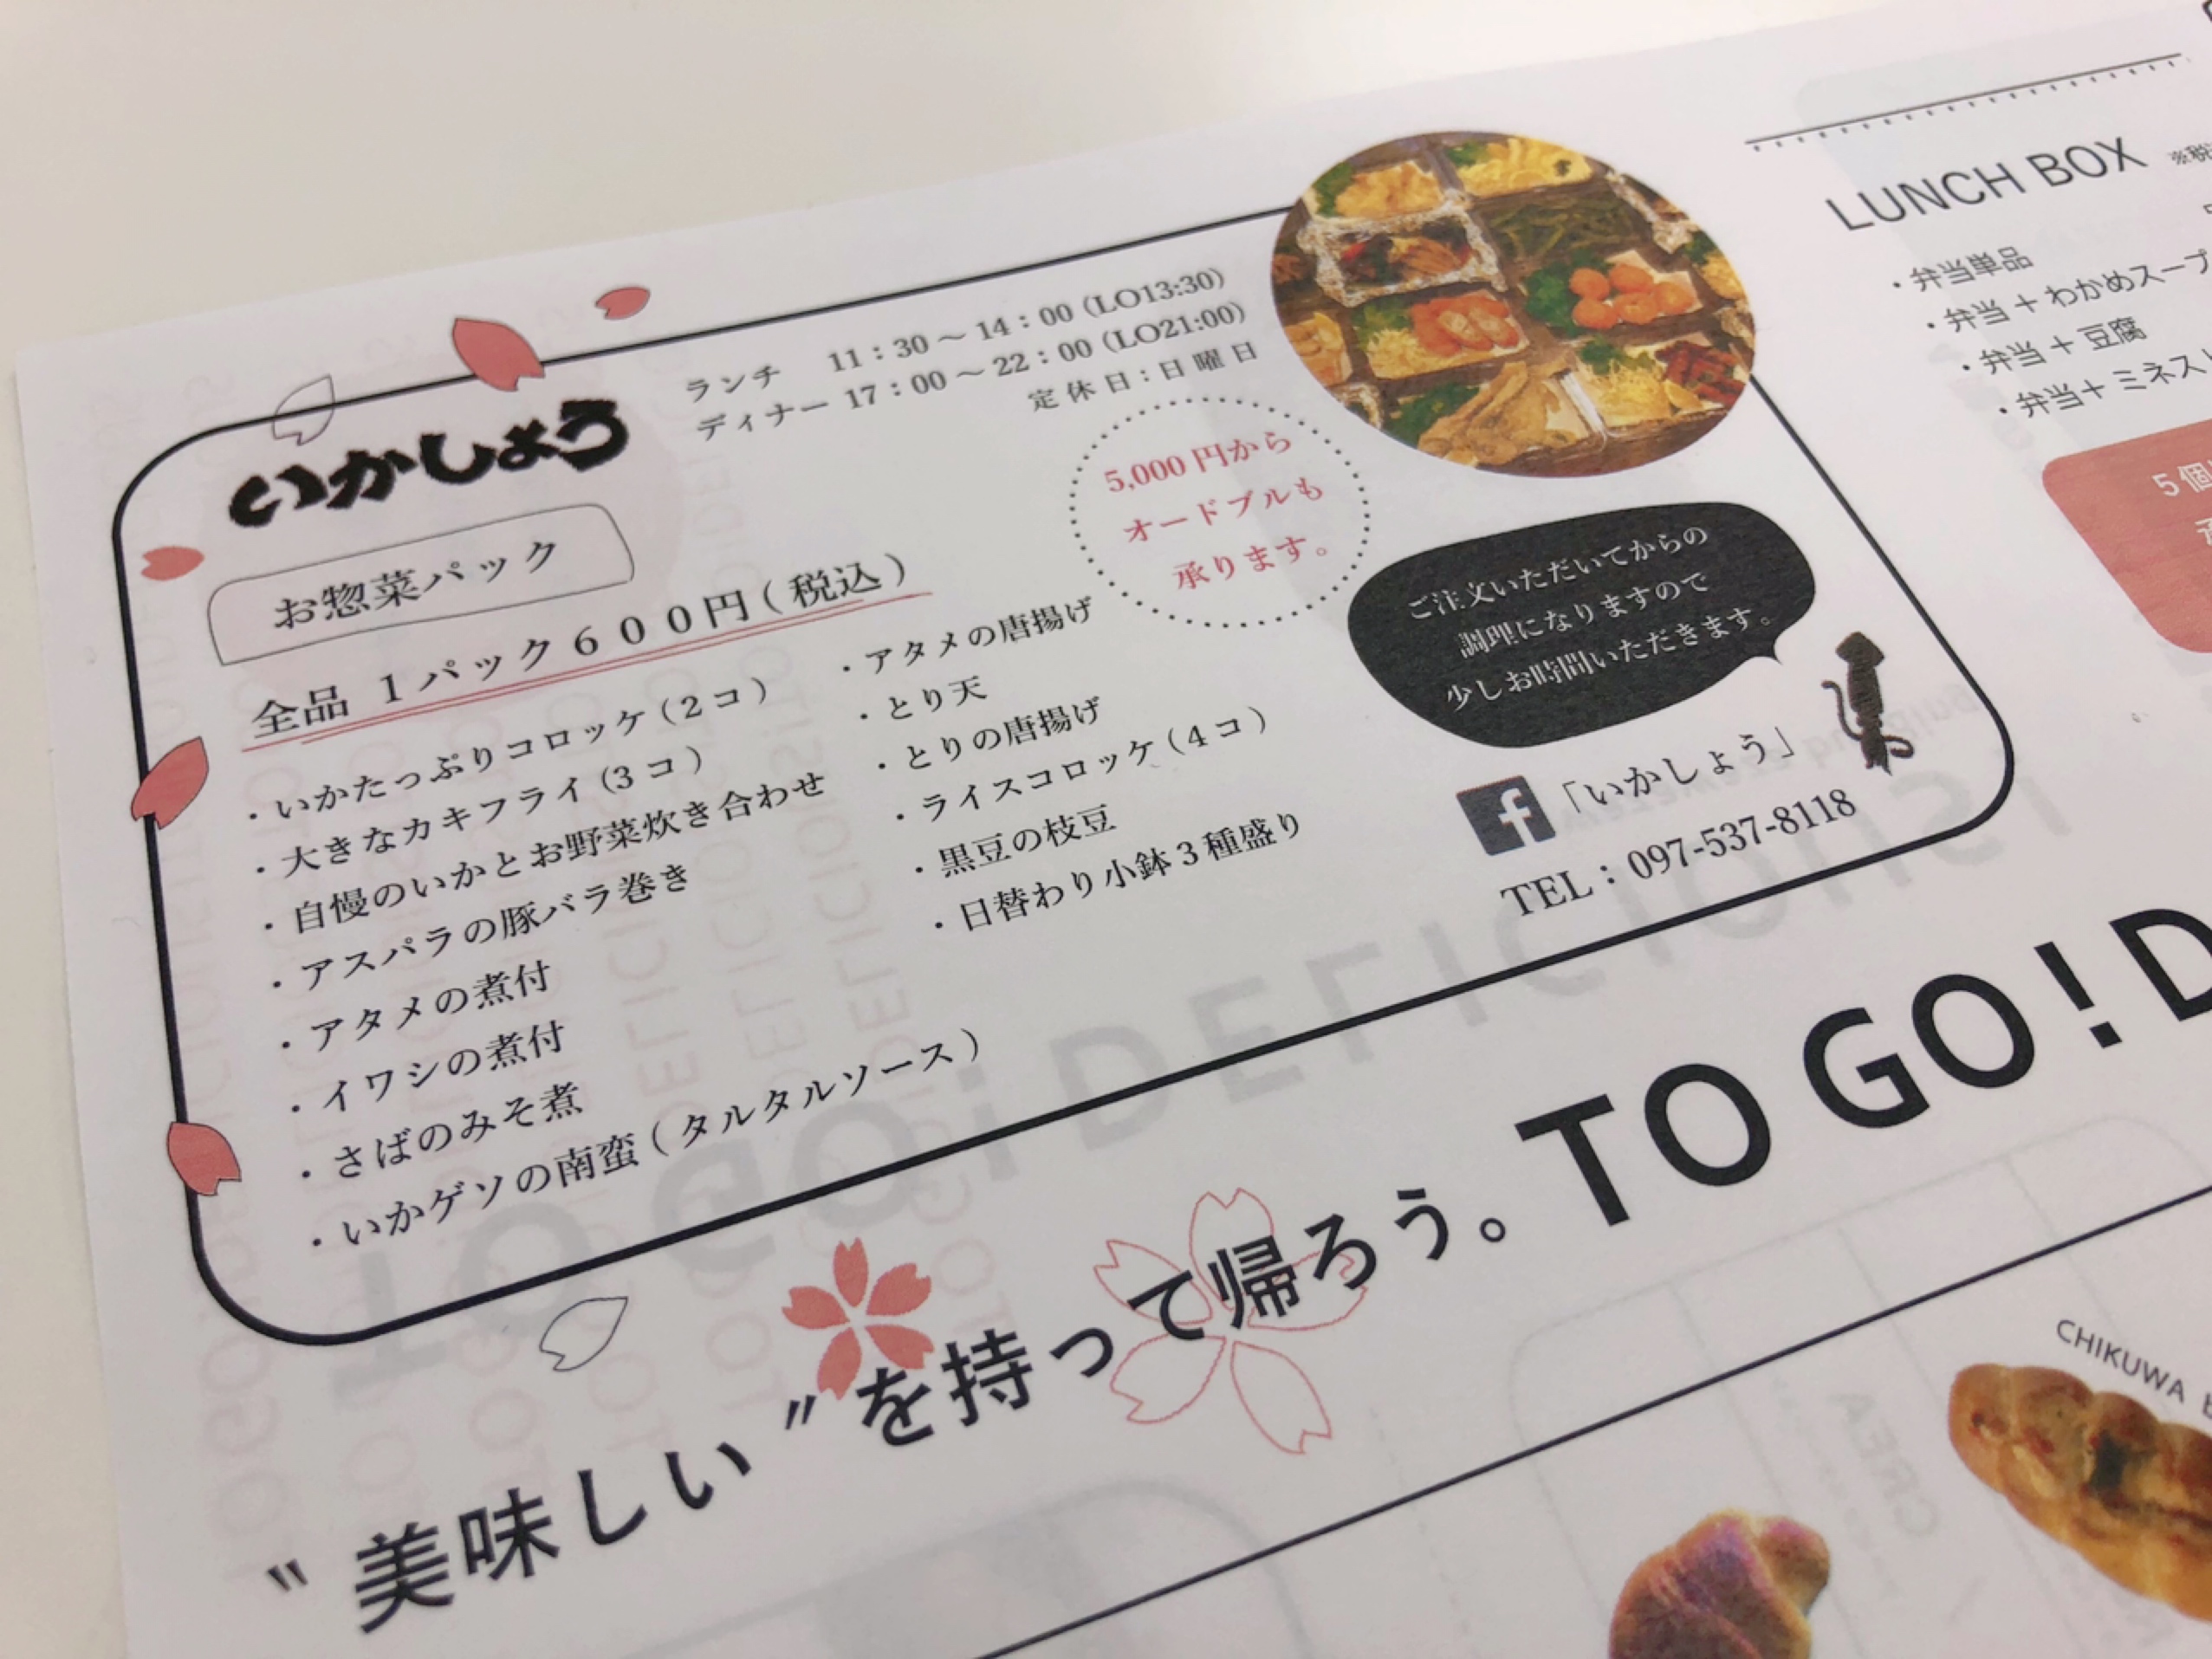 いかしょう
ランチ 11：30～14：00 (LO13:30)
ディナー 17：00～22：00 (LO21:00)
定休日：日曜日
お惣菜パック
全品 1パック600円(税込)
・いかたっぷりコロッケ(2コ)
・大きなカキフライ(3コ)
・自慢のいかとお野菜炊き合わせ
・アスパラの豚バラ巻き
・アタメの煮付
・イワシの煮付
・さばのみそ煮
・いかゲソの南蛮(タルタルソース)
・アタメの唐揚げ
・とり天
・とりの唐揚げ
・ライスコロッケ(4コ)
・黒豆の枝豆
・日替わり小鉢3種盛り
5,000円から
オードブルも
承ります。
ご注文いただいてからの
調理になりますので
少しお時間いただきます。
f「いかしょう」
TEL：097-537-8118
LUNCH BOX ※税
・弁当単品
・弁当＋わかめスープ
・弁当＋豆腐
・弁当＋ミネスト
5個
〝美味しい〞を持って帰ろう。TO GO！D
CHIKUWA